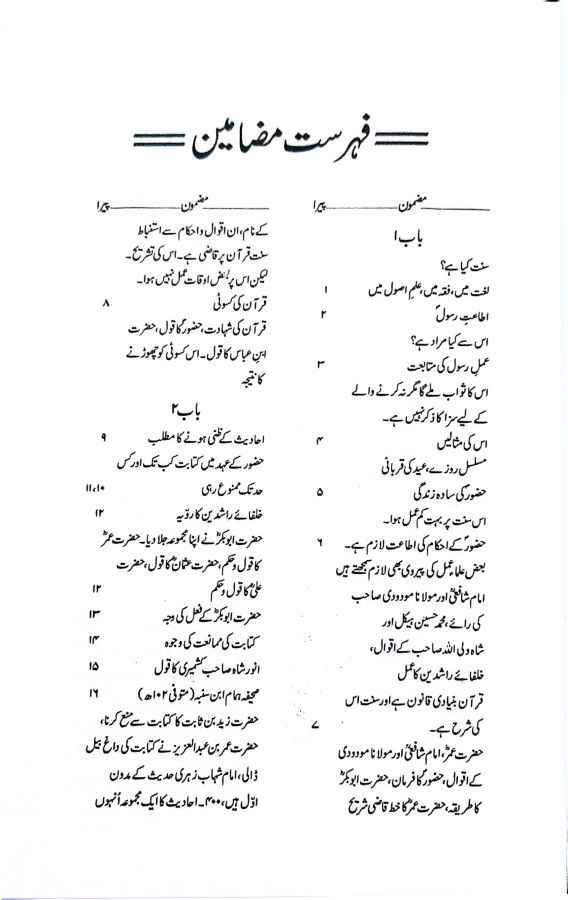 فہرست مضامین
مضمون پیرا
باب ۱
سنت کیا ہے؟
لغت میں، فقہ میں، علم اصول میں ۱
اطاعتِ رسولؐ ۲
اس سے کیا مراد ہے؟
عملِ رسول کی متابعت ۳
اس کا ثواب ملے گا مگر نہ کرنے والے
کے لیے سزا کا ذکر نہیں ہے۔
اس کی مثالیں ۴
مسلسل روزے، عید کی قربانی
حضورؐ کی سادہ زندگی ۵
اس سنت پر بہت کم عمل ہوا۔
حضورؐ کے احکام کی اطاعت لازم ہے۔ ۶
بعض علماء عمل کی پیروی بھی لازم سمجھتے ہیں
امام شافعیؒ اور مولانا مودودی صاحب
کی رائے، محمد حسین ہیکل اور
شاہ ولی اللہ صاحب کے اقوال،
خلفائے راشدین کا عمل
قرآن بنیادی قانون ہے اور سنت اس
کی شرح ہے۔ ۷
حضرت عمرؓ، امام شافعیؒ اور مولانا مودودی
کے اقوال، حضورؐ کا فرمان، حضرت ابوبکرؓ
کا طریقہ، حضرت عمرؓ کا خط قاضی شریح
مضمون پیرا
کے نام، ان اقوال و احکام سے استنباط
سنت قرآن پر قاضی ہے۔ اس کی تشریح۔
لیکن اس پر بعض اوقات عمل نہیں ہوا۔
قرآن کی کسوٹی ۸
قرآن کی شہادت، حضورؐ کا قول، حضرت
ابنِ عباس کا قول۔ اس کسوٹی کو چھوڑنے
کا نتیجہ
باب ۲
احادیث کے ظنی ہونے کا مطلب ۹
حضور کے عہد میں کتابت کب تک اور کس
حد تک ممنوع رہی ۱۰، ۱۱
خلفائے راشدین کا رویہ ۱۲
حضرت ابوبکرؓ نے اپنا مجموعہ جلا دیا۔ حضرت عمرؓ
کا قول و حکم، حضرت عثمانؓ کا قول، حضرت
علیؓ کا قول و حکم ۱۲
حضرت ابوبکرؓ کے فعل کی وجہ ۱۳
کتابت کی ممانعت کی وجوہ ۱۴
انور شاہ صاحب کشمیری کا قول ۱۵
صحیفہ ہمام ابن منبہ (متوفی ۱۰۲ھ) ۱۶
حضرت زید بن ثابت کا کتابت سے منع کرنا،
حضرت عمر بن عبدالعزیز نے کتابت کی داغ بیل
ڈالی، امام شہاب زہری حدیث کے مدون
اوّل ہیں، ۴۰۰۔ احادیث کا ایک مجموعہ اُنہوں